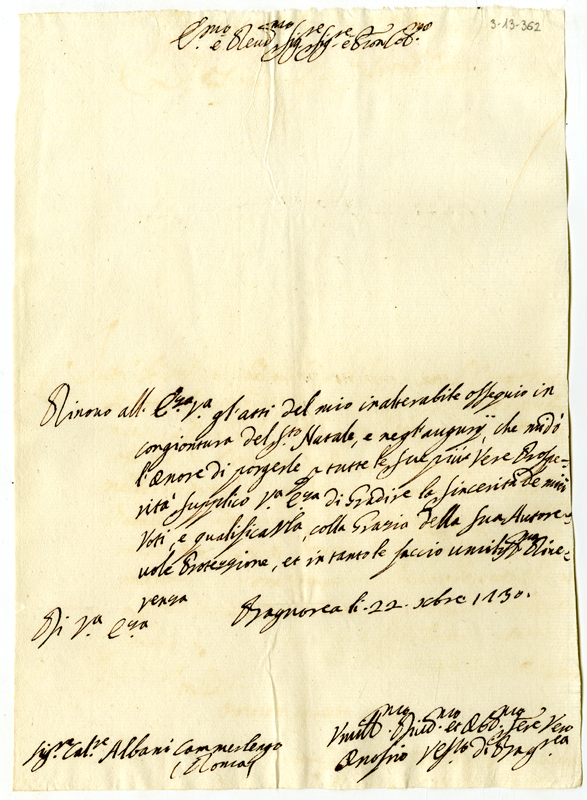 3-13-362
E.mo e Reud.mo Sig.re Sig.re e Pron Col.mo
Rinouo all. E.za V.a gl'atti del mio inalterabile ossequio in
congiontura del S.to Natale, e negl'augurÿ, che mi do
l'onore di porgerle p tutte le sue più vere Prospe=
rità supplico V.a E.za di gradire la sincerità de miei
voti, e qualificarla, colla grazia della sua Autore=
uole Protezzione, et intanto le faccio umiliss.ma Riue=
renza
Di V.a E.za
Bagnorea li 22. xbre 1730.
Sig.re Cal.re Albani Cammerlengo
(Roma)
Vmill.mo Diud.mo et Obb.mo Sere Vero
Onofrio Ves.o di Bagn.rea